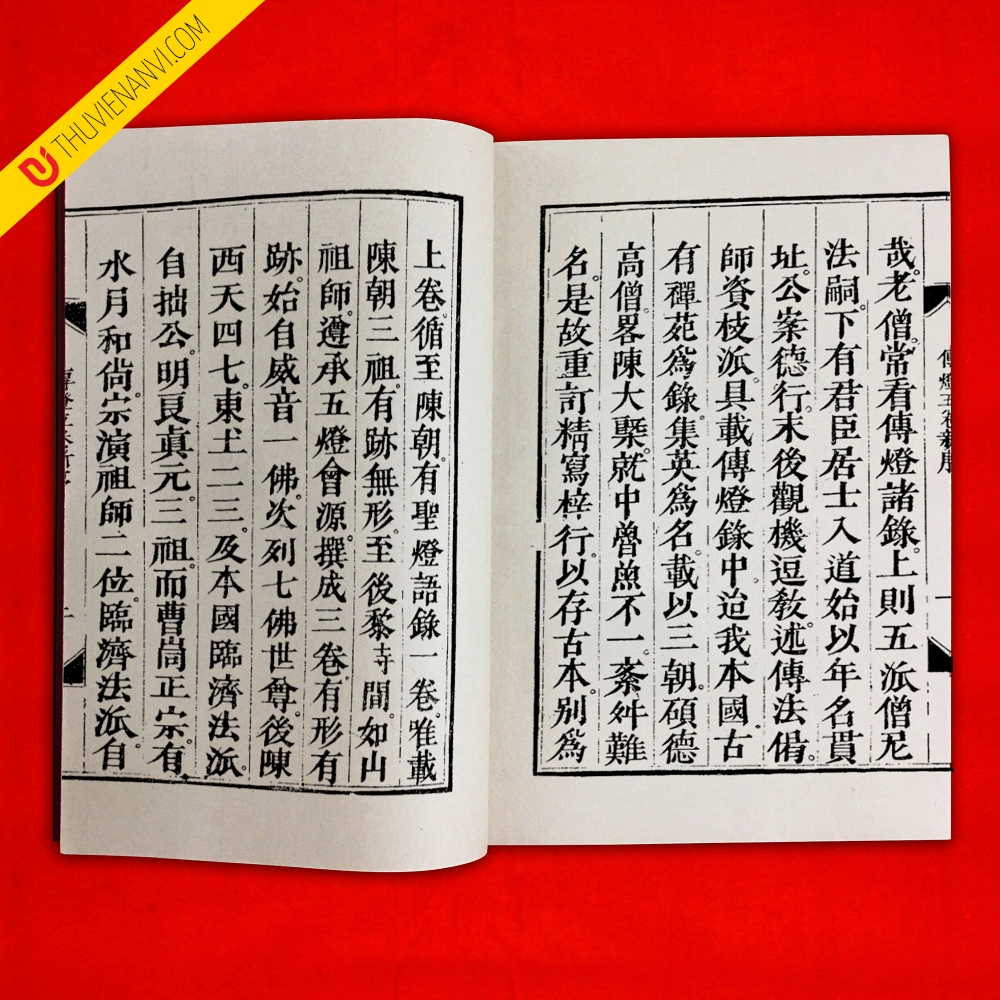 THUVIENANVI.COM
哉。老僧常看傳燈諸錄。上則五派僧尼
法嗣。下有君臣居士入道始以年名貫
址。公案德行。末後觀機逗敎。述傳法偈。
師資枝派。具載傳燈錄中。迨我本國。古
有禪苑爲錄。集英爲名。載以三朝。碩德
高僧。畧陳大槩。就中魯魚不一。紊舛難
名。是故重訂精寫梓行。以存古本。别爲
上卷。循至陳朝。有聖燈語錄一卷。唯載
陳朝三祖。有跡無形。至後黎寺間。如山
祖師。遵承五燈會源。撰成三卷。有形有
跡。始自威音一佛。次列七佛世尊。後陳
西天四七。東土二三。及本國臨濟法派。
自拙公。明良眞元。三祖。而曹崮正宗。有
水月和尙。宗演祖師二位。臨濟法派。自